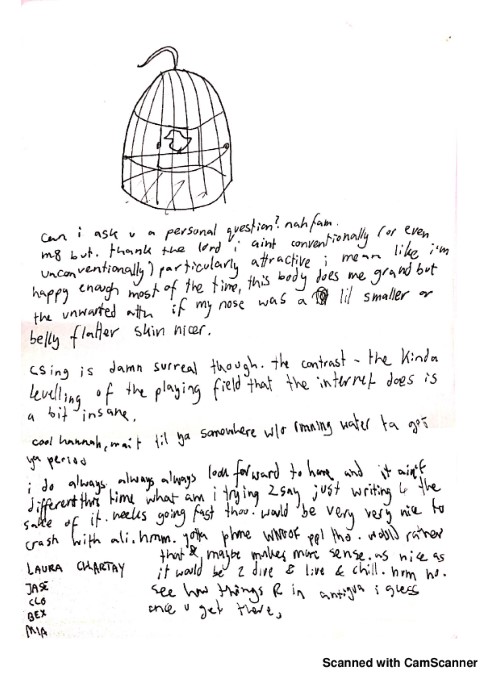 can i ask u a personal question? nah fam.
m8 but. thank the lord i aint conventionally (or even
unconventionally) particularly attractive i mean like i'm
happy enough most of the time, this body does me grand but
the unwanted attn if my nose was a lil smaller or
belly flatter skin nicer.
csing is damn surreal though. the contrast - the kinda
levelling of the playing field that the internet does is
a bit insane.
cool hannah, wait til ya somewhere w/o running water ta got
ya period
i do always always always look forward to home and it ain't
different this time what am i trying 2 say just writing 4 the
sake of it. weeks going fast tho. would be very very nice to
crash with ali. hmm. gotta phone ppl tho. would rather
that &, maybe makes more sense. as nice as
it would be 2 dive & live & chill. hrm no.
see how things R in antigua i guess
once u get there,
LAURA CHARTAY
JASE
CLO
BEX
MIA
Scanned with CamScanner